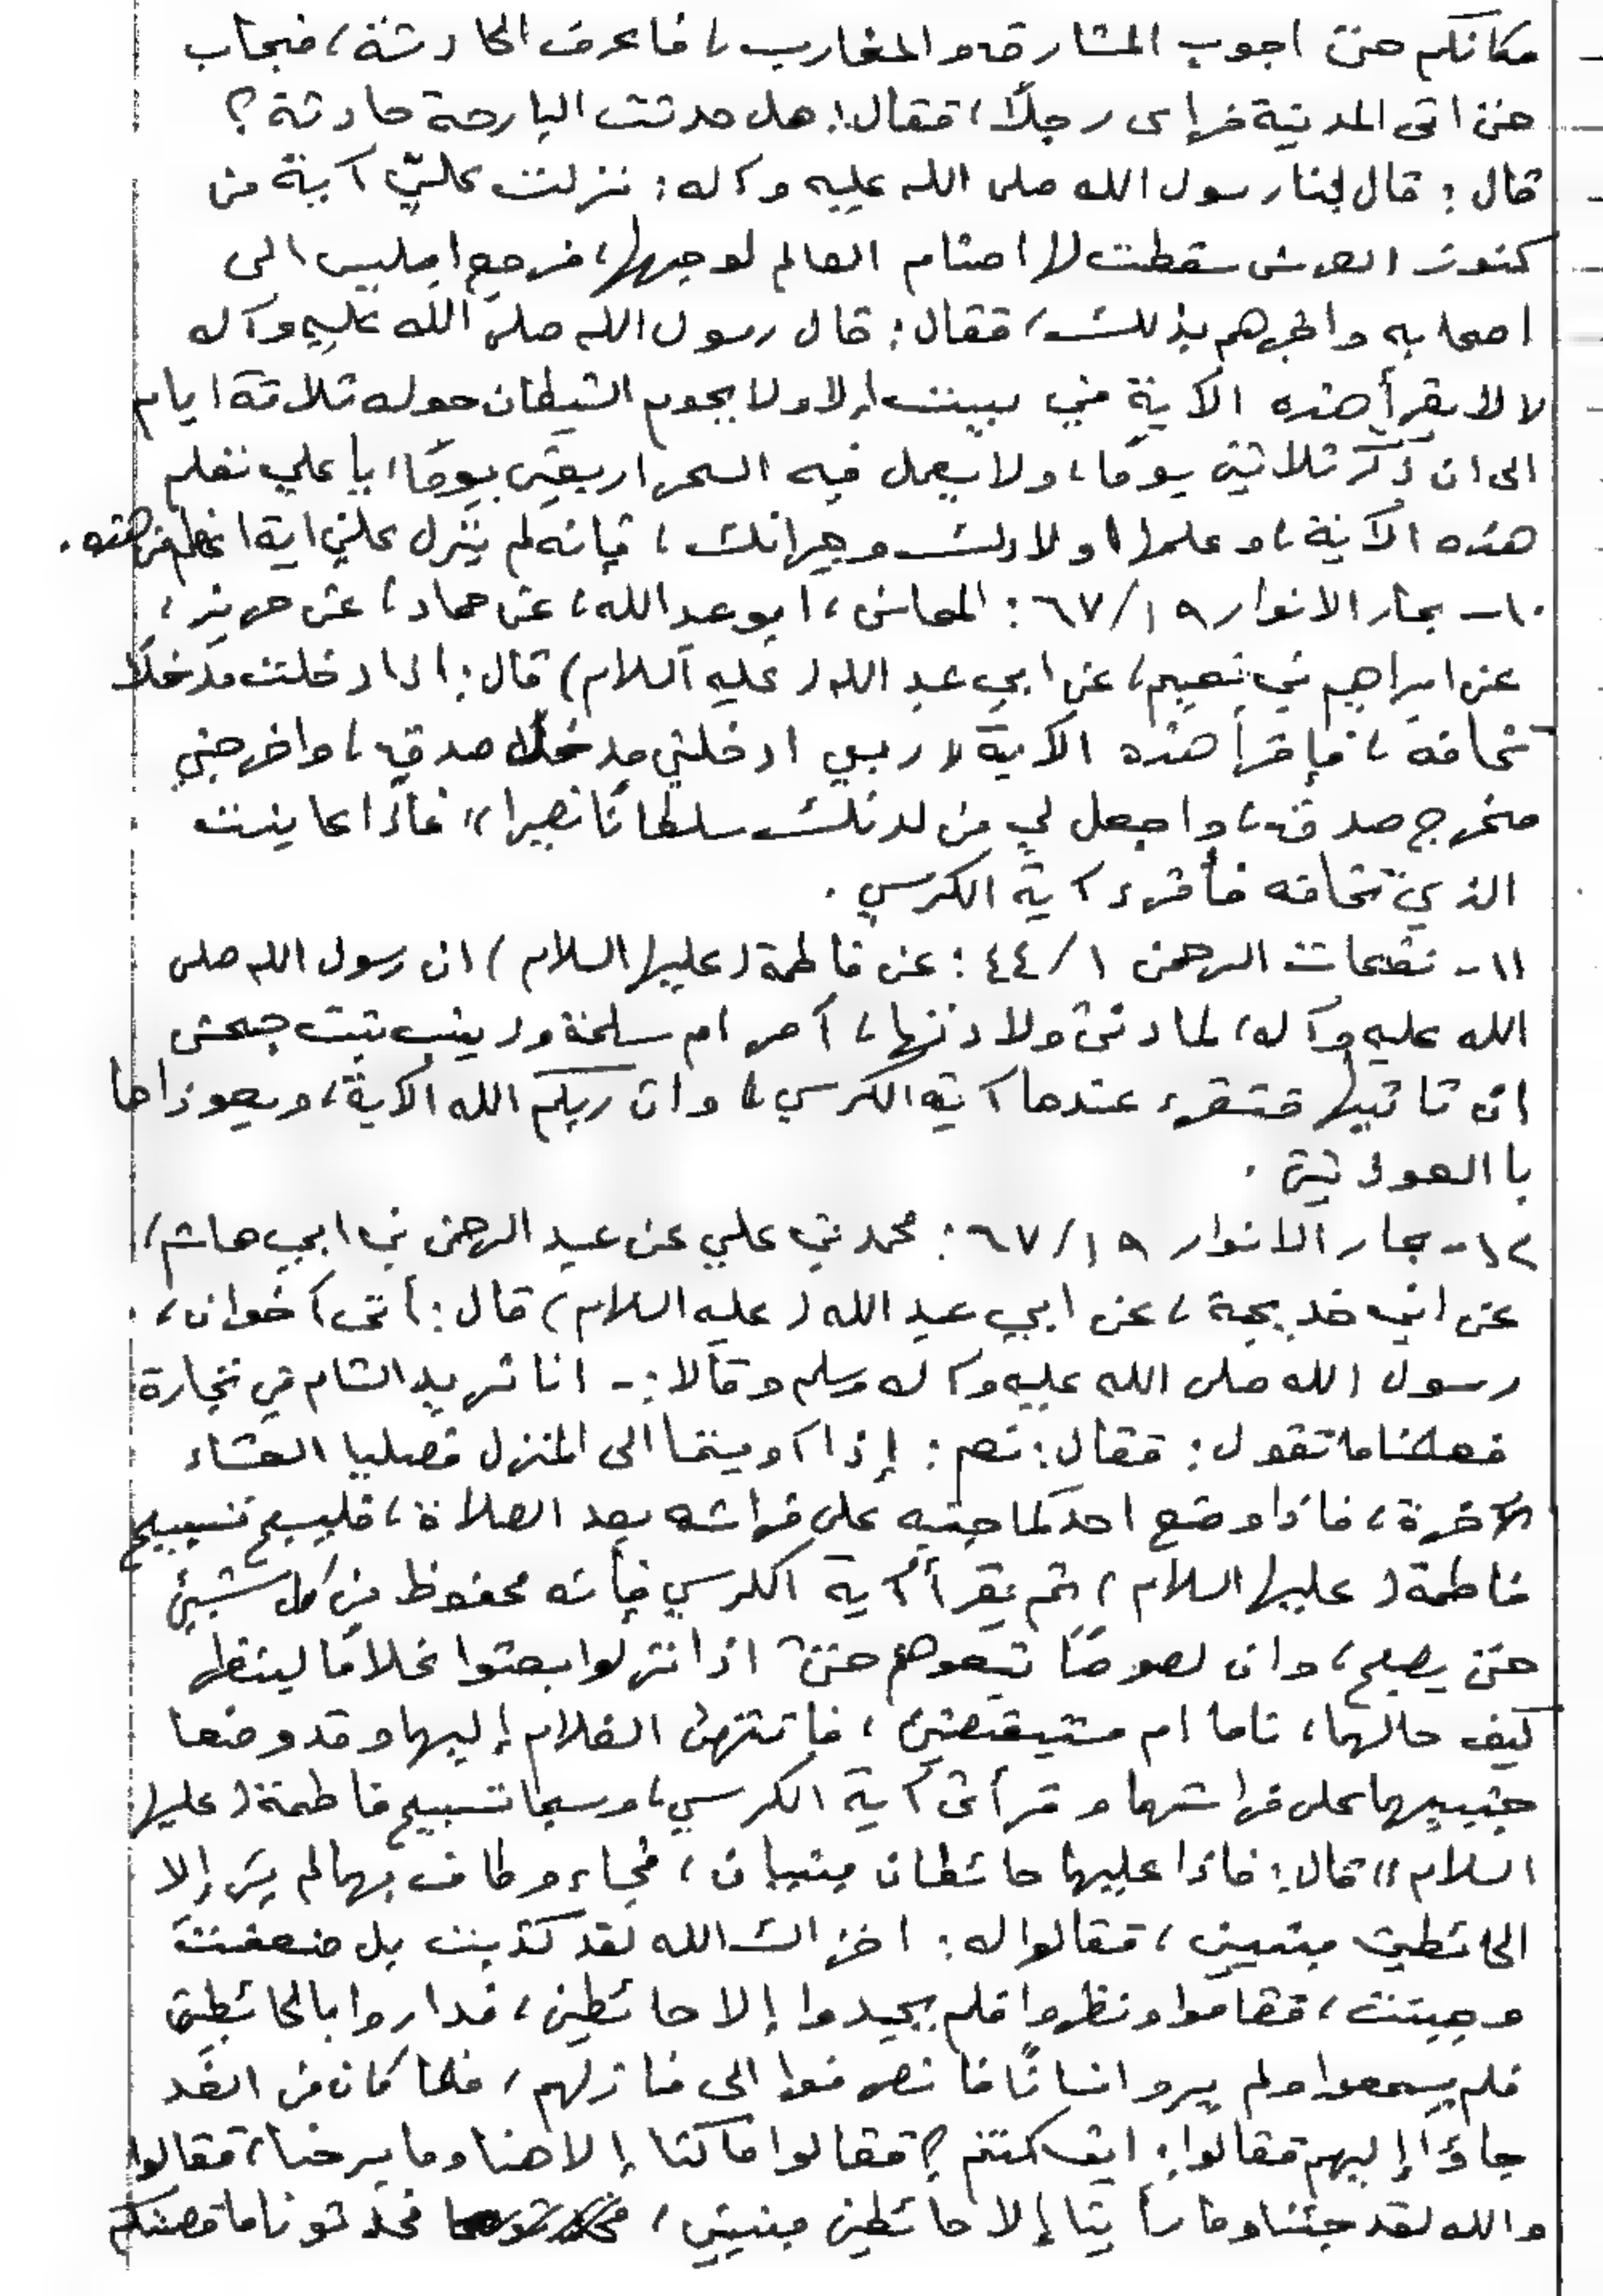 مكانكم حتى اجوب المشارق والمغارب، فاعرف الحادثة، فجاب
حتى اتى المدينة فرأى رجلاً، فقال: هل حدثت البارحة حادثة؟
قال: قال لنا رسول الله صلى الله عليه وآله: نزلت عليّ آية من
كنوز العرش سقطت لها اصنام العالم لوجهها، فرجع ابليس الى
اصحابه واخبرهم بذلك، فقال: قال رسول الله صلى الله عليه وآله
لا يقرأ هذه الآية في بيت إلا ولا يحوم الشيطان حوله ثلاثة ايام
الى ان ذكر ثلاثين يومًا، ولا يعمل فيه السحر اربعين يومًا، يا علي تعلم
هذه الآية، وعلمها اولادك وجيرانك، فإنه لم ينزل علي اية اعظم من هذه.
١٠- بحار الانوار ٦٧/١٩: المحاسن، ابو عبد الله، عن حماد، عن حريز،
عن ابراهيم بن نعيم، عن ابي عبد الله (عليه السلام) قال: إذا دخلت مدخلاً
تخافه، فإقرأ هذه الآية «ربي ادخلني مدخل صدق، واخرجني
مخرج صدق، واجعل لي من لدنك سلطانًا نصيرا» فإذا عاينت
الذي تخافه فأقرء آية الكرسي.
١١- نفحات الرحمن ٤٤/١: عن فاطمة (عليها السلام) ان رسول الله صلى
الله عليه وآله، لما دنى ولادتها، آمر ام سلمة وزينب بنت جحش
ان تاتيها فتقرء عندها آية الكرسي، وان ربكم الله الآية، ويعوذاها
با العوذتين.
١٢- بحار الانوار ٦٧/١٩: محمد بن علي عن عبد الرحمن بن ابي هاشم،
عن ابي خديجة، عن ابي عبد الله (عليه السلام) قال: أتى آخوان،
رسول الله صلى الله عليه وآله وسلم وقالا:- انا نريد الشام في تجارة
فعلمنا ما تقول: فقال: نعم: إذا آويتما الى المنزل فصليا العشاء
الآخرة، فاذا وضع احدكما جنبه على فراشه بعد الصلاة، فليسبح تسبيح
فاطمة (عليها السلام) ثم يقرأ آية الكرسي فإنه محفوظ من كل شيئ
حتى يصبح، وان لصوصًا تبعوهم حتى اذا نزلوا بعثوا غلامًا لينظر
كيف حالهما، ناما ام مستيقضين، فانتهى الغلام إليهما وقد وضعا
جنبيهما على فراشهما وقرأى آية الكرسي، وسبحا تسبيح فاطمة (عليها
السلام» قال: فاذا عليهما حائطان مبنيان، فجاء وطاف بهما لم ير إلا
الحائطين مبنيين، فقالوا له: اخزاك الله لقد كذبت بل ضعفت
وجبنت، فقاموا ونظروا فلم يجيدوا إلا حائطين، فداروا بالحائطين
فلم يسمعوا ولم يرو انسانًا فانصرفوا الى منازلهم، فلما كان من الغد
جاؤا إليهم فقالوا: اين كنتم؟ فقالوا ما كنا إلا هنا وما برحنا، فقالوا
والله لقد جئنا وما رأيتا إلا حائطين مبنيين، فحدثونا ما قصتكم